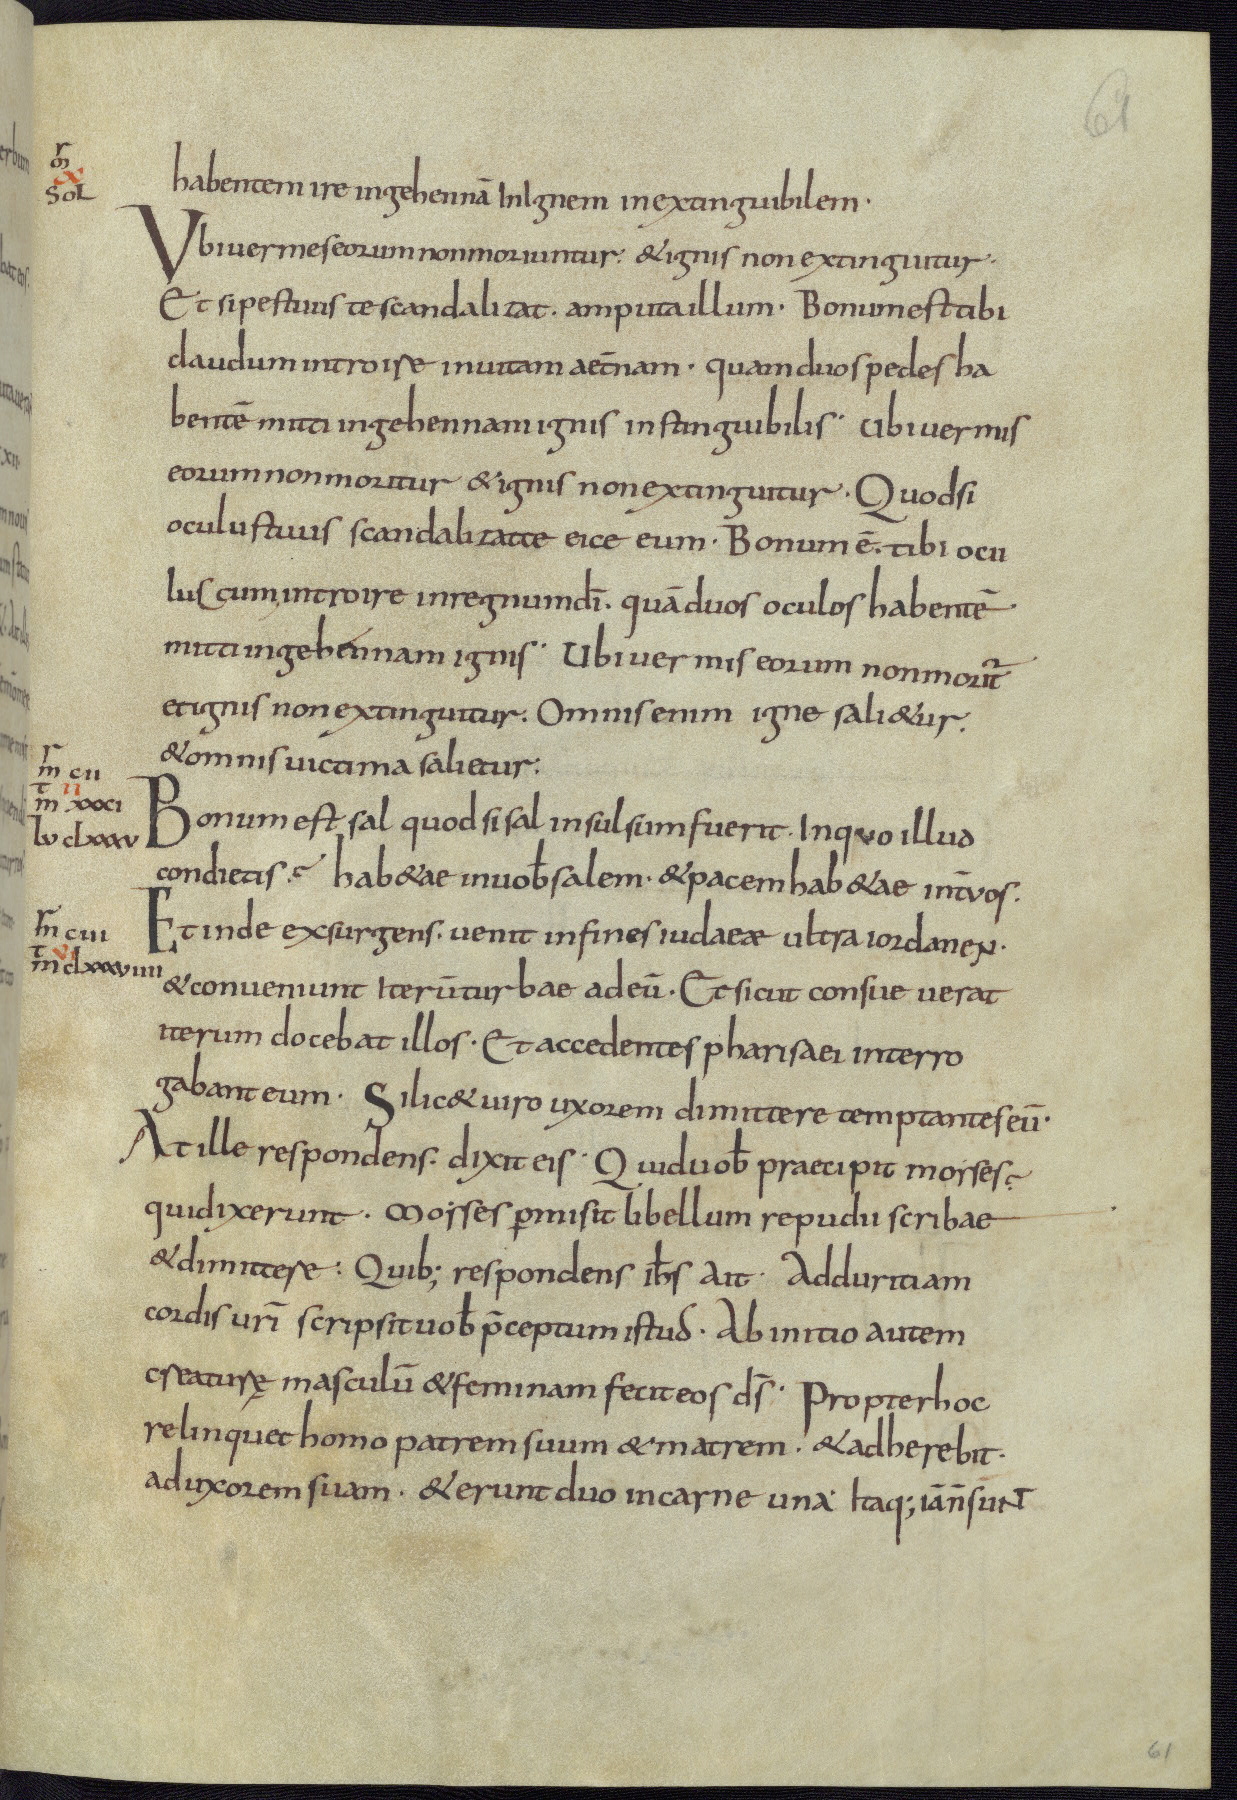 61
habentem ire ingehennā InIgnem inextinguibilem·
Vbiuermeseorumnonmoriuntur: &ignis nonextinguitur·
Et sipestuus tescandalizat· amputaillum· Bonumesttibi
claudumintroire inuitam aet̄nam· quamduospedes ha
bentē mitti ingehennamignis instinguibilis· Ubi uermis
eorumnonmoritur &ignis nonextinguitur· Quodsi
oculustuus scandalizatte eice eum· Bonum ē· tibi ocu
luscumintroire inregnumdī· quāduos oculos habentē·
mitti ingehennam ignis· Ubi uermis eorum nonmorit̄
etignis nonextinguitur: Omnisenim igne sali&ur·
&omnisuictima salietur:
r
m cii
t ii
m xxxci
lv clxxxv
Bonumest sal quodsisal insulsumfuerit· Inquo illud
condietis: hab&ae inuob̄salem· &pacemhab&ae int̄vos·
m ciii
t vi
m clxxxviiii
Et inde exsurgens· uenit infines iudaeae ultra iordanen·
&conueniunt Iterūturbae adeū· Etsicut consue uerat
iterum docebat illos· Et accedentes pharisaei interro
gabanteum· Silic&uiro uxorem dimittere temptanteseū·
At ille respondens· dixit eis· Quiduob̄ praecipit moises
quidixerunt· Moises p̄misit libellum repudii scribae
&dimittere: Quib; respondens ih̄s Ait· Adduritiam
cordis ur̄i scripsituob̄ p̄ceptum istud· Ab initio autem
creaturę masculū &feminam fecit eos ds̄· Propterhoc
relinquet homo patremsuum &matrem· &adherebit·
aduxoremsuam· &erunt duo incarne una· Itaq; iān̄sunt
61